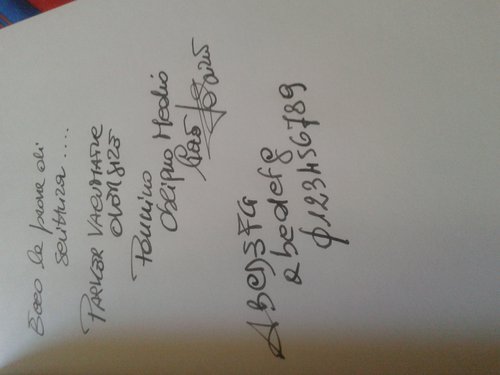 Ecco le prove di
scrittura....
PARKER VACUMATIC
OVERSIZE
Pennino
Obliquo Medio
Ciao
ABCDEFG
abcdefg
0123456789